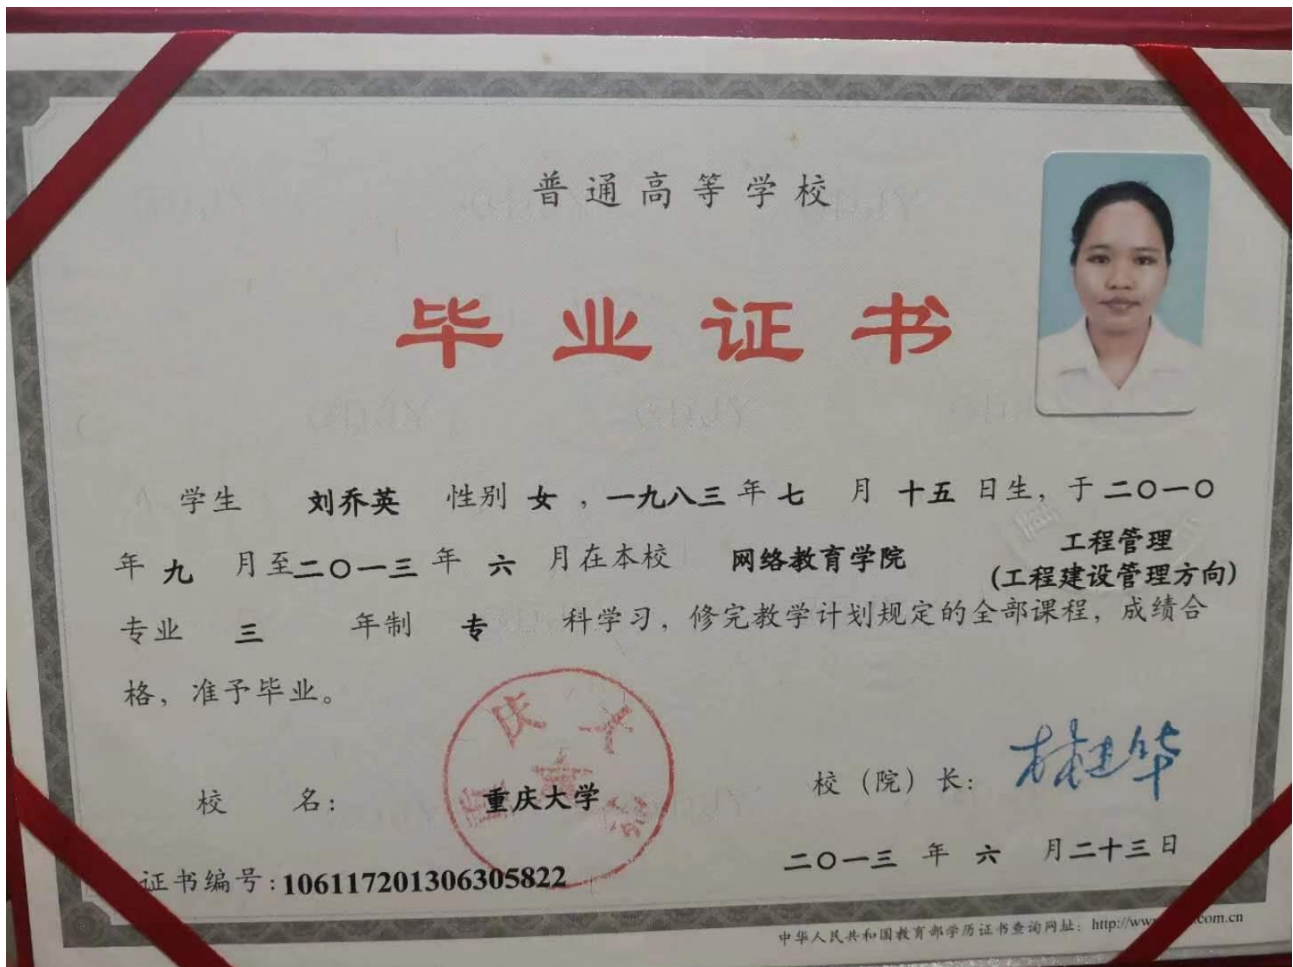 普通高等学校
毕业证书
学生 刘乔英 性别 女，一九八三年 七 月 十五 日生，于二〇一〇
年 九 月至二〇一三 年 六 月在本校 网络教育学院 工程管理
(工程建设管理方向)
专业 三 年制 专 科学习，修完教学计划规定的全部课程，成绩合
格，准予毕业。
校 名： 重庆大学
校（院）长：
二〇一三 年 六 月二十三日
证书编号:106117201306305822
中华人民共和国教育部学历证书查询网址：http://ww
.com.cn